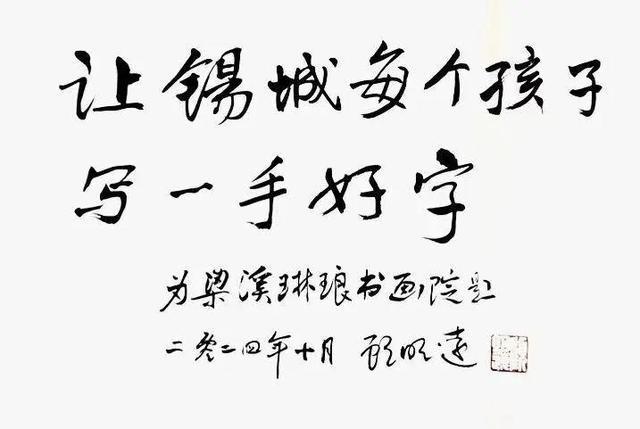 让锡城每个孩子
写一手好字
为梁溪琳琅书画院题
二零二四年十月 顾明远